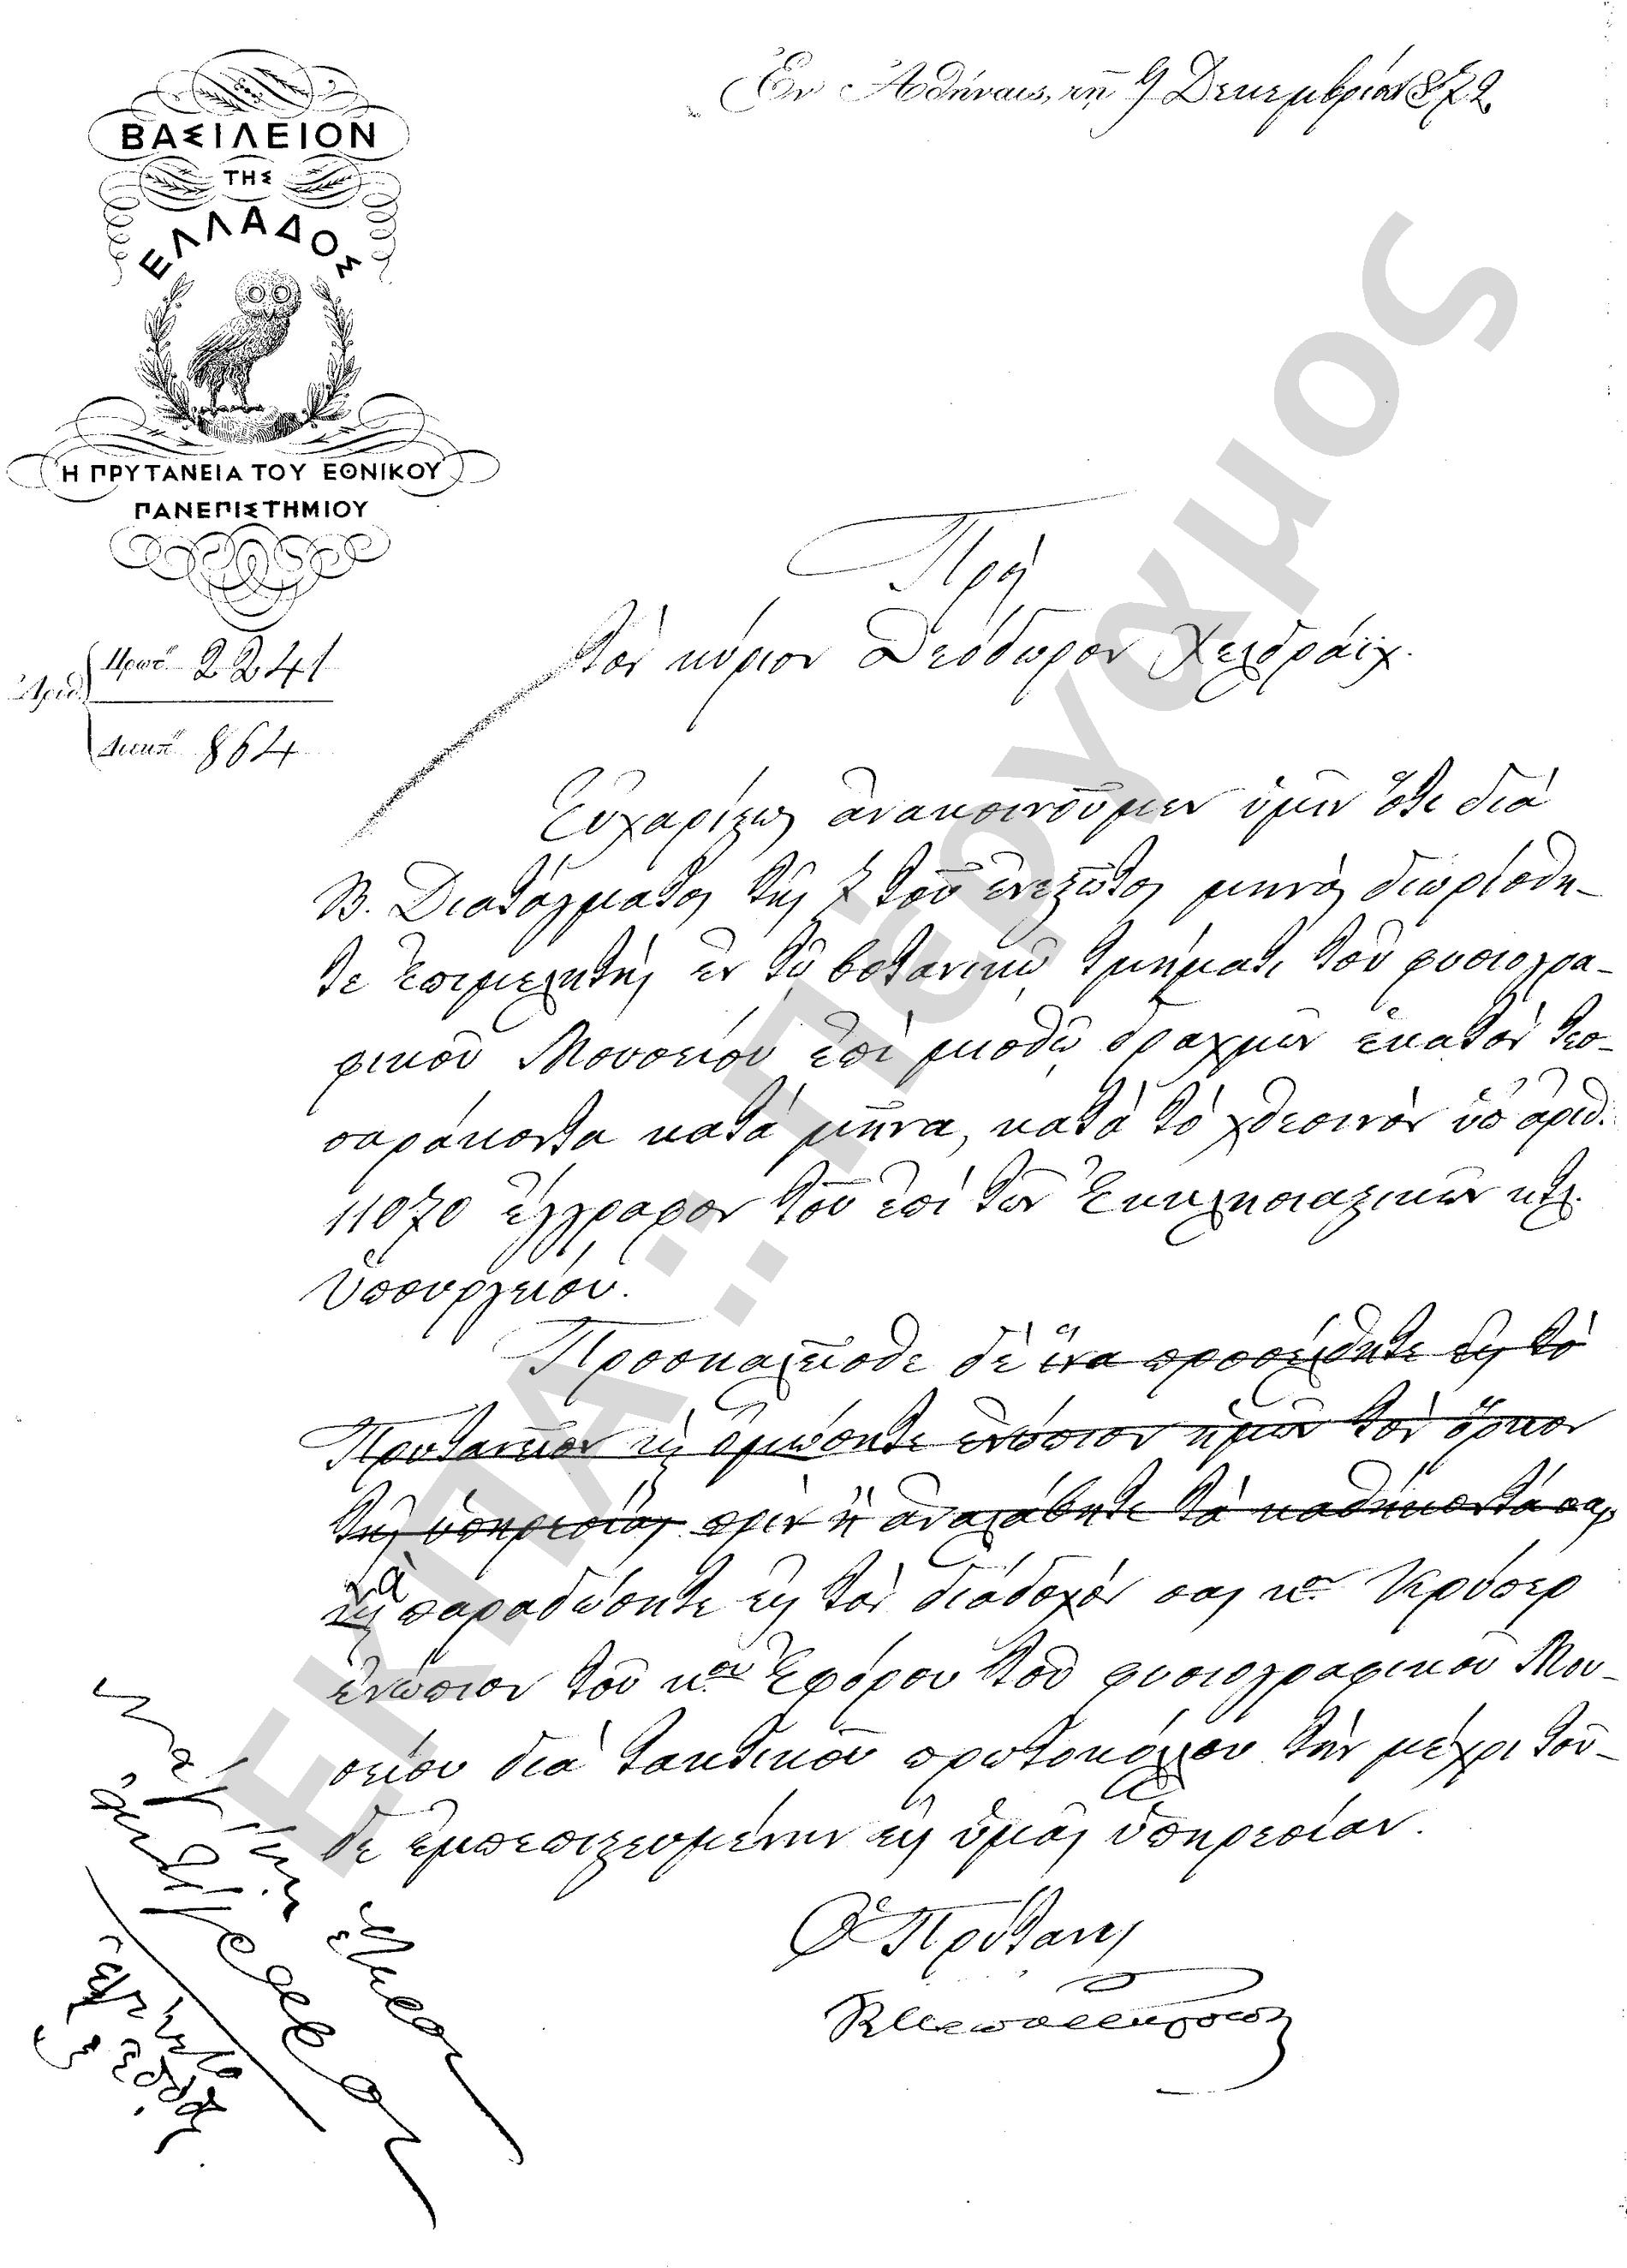 Ἐν Ἀθήναις, τῇ 9 Δεκεμβρίου 1872.
ΒΑΣΙΛΕΙΟΝ
ΤΗΣ
ΕΛΛΑΔΟΣ
Η ΠΡΥΤΑΝΕΙΑ ΤΟΥ ΕΘΝΙΚΟΥ
ΠΑΝΕΠΙΣΤΗΜΙΟΥ
Ἀριθ.
Πρωτ. 2241
Διεκπ. 864
Πρὸς
τὸν κύριον Θεόδωρον Χελδράϊχ.
Εὐχαρίστως ἀνακοινοῦμεν ὑμῖν ὅτι διὰ
Β. Διατάγματος τῆς 7 τοῦ ἐνεστῶτος μηνὸς διωρίσθη-
τε ἐπιμελητὴς ἐν τῷ βοτανικῷ τμήματι τοῦ φυσιογρα-
φικοῦ Μουσείου ἐπὶ μισθῷ δραχμῶν ἑκατὸν τεσ-
σαράκοντα κατὰ μῆνα, κατὰ τὸ χθεσινὸν ὑπ' ἀριθ.
11070 ἔγγραφον τοῦ ἐπὶ τῶν Ἐκκλησιαστικῶν κτλ.
Ὑπουργείου.
Προσκαλεῖσθε δὲ ἵνα προσέλθητε εἰς τὸ
Πρυτανεῖον κ ὀμώσητε ἐνώπιον ἡμῶν τὸν ὅρκον
τῆς ὑπηρεσίας πρὶν ἢ ἀναλάβητε τὰ καθήκοντά σας
νὰ παραδώσητε εἰς τὸν διάδοχόν σας κον Κρύπερ
ἐνώπιον τοῦ κου Ἐφόρου τοῦ φυσιογραφικοῦ Μου-
σείου διὰ τακτικοῦ πρωτοκόλλου τὴν μέχρι τοῦ-
δε ἐμπεπιστευμένην εἰς ὑμᾶς ὑπηρεσίαν.
Ὁ Πρύτανις
ΕΚΠΑ:: Πέργαμος